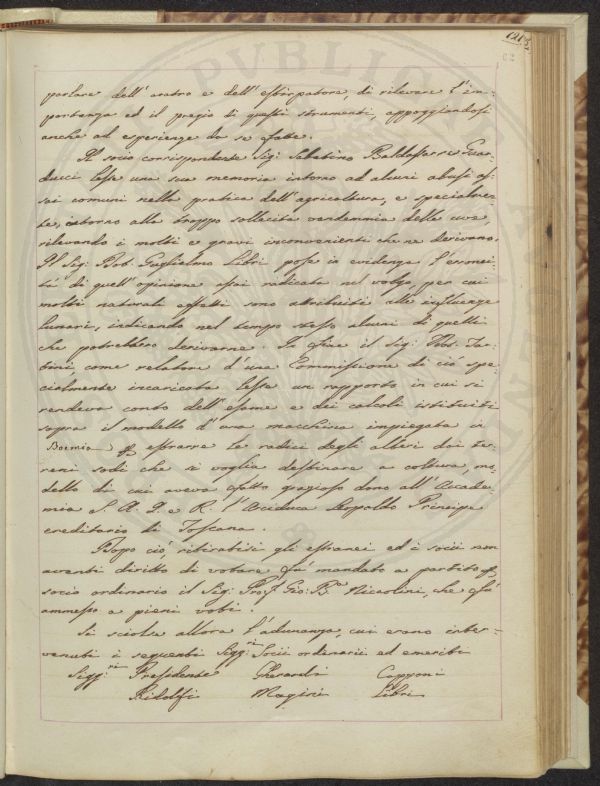 1218
62
parlare dell' aratro e dell' estirpatore, di rilevare l' im-
portanza ed il pregio di questi strumenti, appoggiandosi
anche ad esperienze da se fatte.
Il socio corrispondente Sig: Sabatino Baldassarre Guar-
ducci lesse una sua memoria intorno ad alcuni abusi as-
sai comuni nella pratica dell' agricoltura, e specialmen-
te, intorno alla troppo sollecita vendemmia delle uve,
rilevando i molti e gravi inconvenienti che ne derivano.
Il Sig: Dot. Guglielmo Libri pose in evidenza l' erronei-
tà di quell' opinione assai radicata nel volgo, per cui
molti naturali effetti sono attribuiti alle influenze
lunari, indicando nel tempo stesso alcuni di quelli
che potrebbero derivarne. In fine il Sig: Dot. Tar-
bini, come relatore d' una Commissione di ciò spe-
cialmente incaricata lesse un rapporto in cui si
rendeva conto dell' esame e dei calcoli istituiti
sopra il modello d' una macchina impiegata in
Boemia per estrarre le radici degli alberi dai ter-
reni sodi che si voglia destinare a coltura, mo-
dello di cui aveva fatto grazioso dono all' Accade-
mia S. A. I. e R. l' Arciduca Leopoldo Principe
ereditario di Toscana.
Dopo ciò, ritiratisi gli estranei ed i socii non
aventi diritto di votare fu mandato a partito per
socio ordinario il Sig: Prof. Gio: Bª Niccolini, che fu
ammesso a pieni voti.
Si sciolse allora l' adunanza, cui erano inter-
venuti i seguenti Sigg:ri Socii ordinarii ed emeriti
Sigg:ri Presidente Gherardi Capponi
Ridolfi Magini Libri